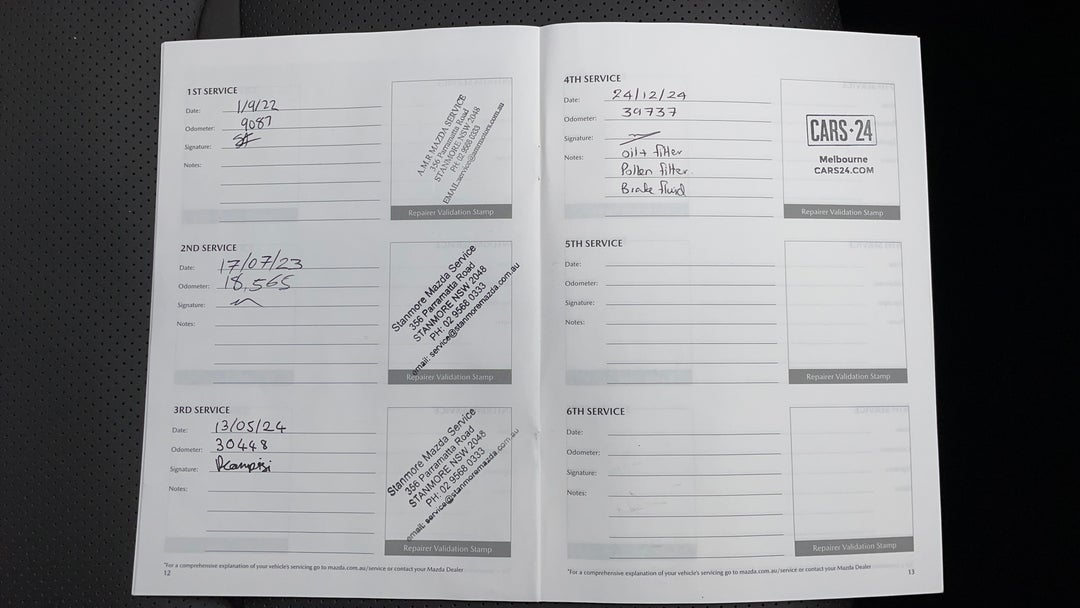 1ST SERVICE
Date: 1/9/22
Odometer: 9087
Signature:
Notes:
A.M.R MAZDA SERVICE
356 Parramatta Road
STANMORE NSW 2048
PH: 02 9568 0333
Repairer Validation Stamp
2ND SERVICE
Date: 17/07/23
Odometer: 18,565
Signature:
Notes:
Stanmore Mazda Service
356 Parramatta Road
STANMORE NSW 2048
PH: 02 9568 0333
email: service@stanmoremazda.com.au
Repairer Validation Stamp
3RD SERVICE
Date: 13/05/24
Odometer: 30448
Signature:
Notes:
Stanmore Mazda Service
356 Parramatta Road
STANMORE NSW 2048
PH: 02 9568 0333
email: service@stanmoremazda.com.au
Repairer Validation Stamp
*For a comprehensive explanation of your vehicle's servicing go to mazda.com.au/service or contact your Mazda Dealer
12
4TH SERVICE
Date: 24/12/24
Odometer: 39737
Signature:
Notes: oil + filter
Pollen filter
Brake fluid
CARS·24
Melbourne
CARS24.COM
Repairer Validation Stamp
5TH SERVICE
Date:
Odometer:
Signature:
Notes:
Repairer Validation Stamp
6TH SERVICE
Date:
Odometer:
Signature:
Notes:
Repairer Validation Stamp
*For a comprehensive explanation of your vehicle's servicing go to mazda.com.au/service or contact your Mazda Dealer
13